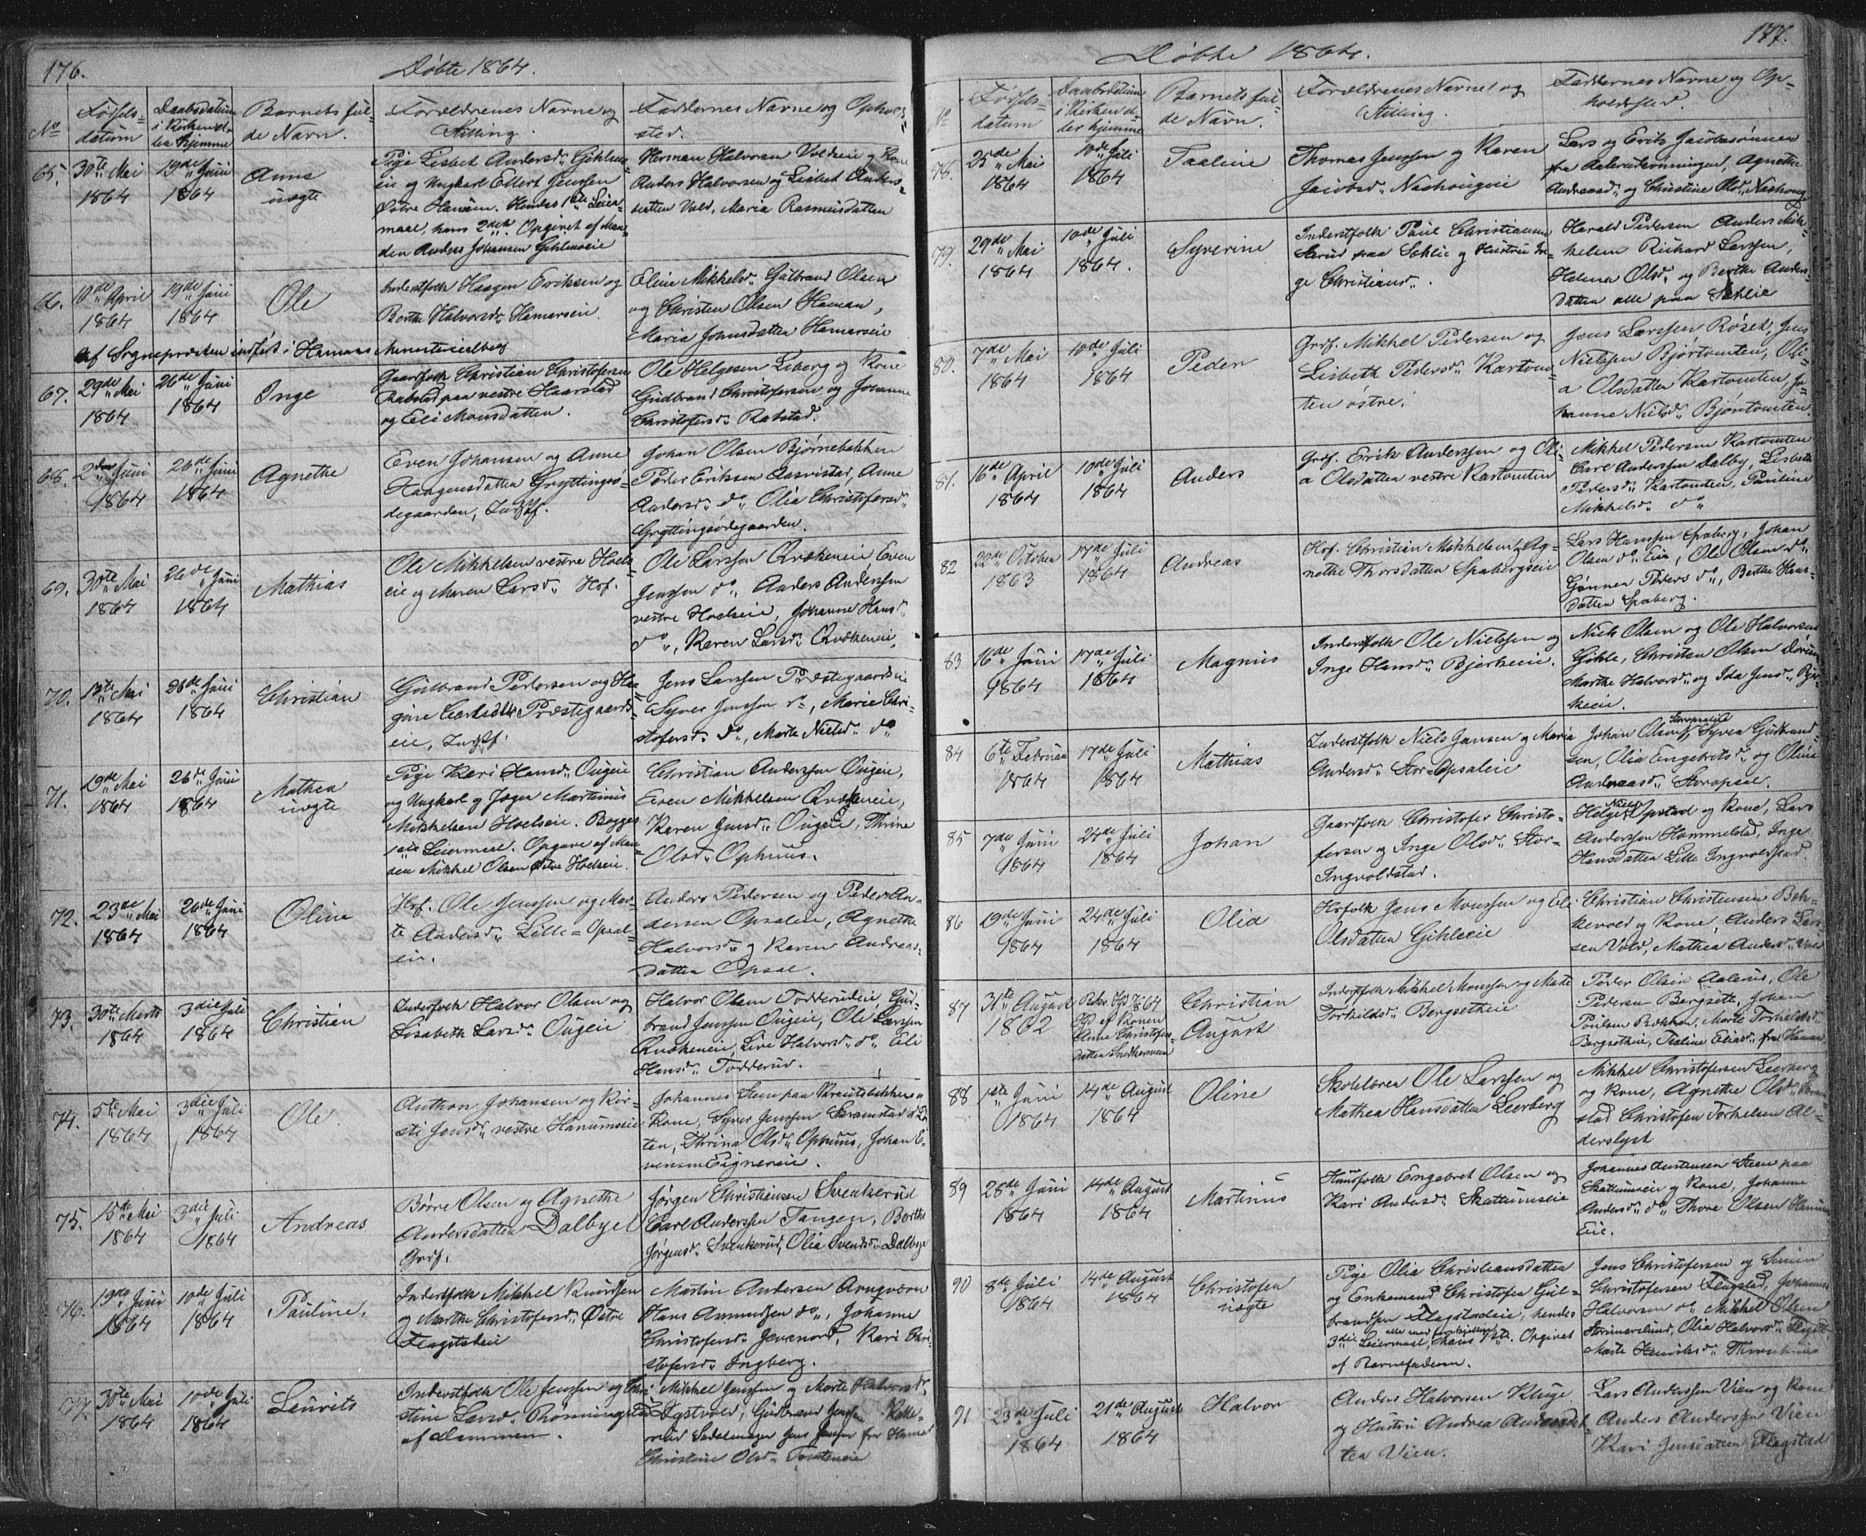 176.
Døbte 1864.
No
Fødsels-
datum
Daabsdatum
i Kirken el-
ler hjemme
Barnets ful-
de Navn.
Forældrenes Navne og
Stilling.
Faddernes Navne og Opholds-
sted.
65.
30te Mai
1864
19de Juni
1864
Anne
uægte
Pige Lisbet Andersd. Gihlese-
eie og Ungkarl Ellert Jenssen
Østre Hanum. Hendes 1ste Leier-
maal, hans 2det. Opgivet af Man-
den Anders Johansen Gihleseie
Herman Halvorsen Voldeie og Kone
Anders Halvorsen og Lisbet Anders-
datten Vold, Maria Rasmusdatten
66.
10de April
1864
19de Juni
1864
Ole
Inderstfolk Haagen Eriksen og
Berthe Halvorsd. Hamarseie.
Eline Mikkelsd. Gulbrand Olsen
og Christen Olsen Haman,
Maria Johnsdatten Hamarseie
af Sognepræsten indført i Hamars Ministerialbog
67.
29de Mai
1864
26de Juni
1864
Inge
Gaardfolk Christian Christofersen
Rabstad paa vestre Haarstad
og Eli Monsdatten.
Ole Helgesen Leberg og Kone
Gudbrand Christofersen og Johanne
Christofersd. Rabstad.
68.
2den Juni
1864
26de Juni
1864
Agnethe
Even Johansen og Anne
Haagensdatten Gryttingsø-
degaarden, Indf.
Johan Olsen Bjørnebakken
Peder Eriksen Aasvistad, Anne
Andersd. do, Olia Christofersd.
Gryttingsødegaarden.
69.
30te Mai
1864
26de Juni
1864
Mathias
Ole Mikkelsen vestre Hoels-
eie og Maren Larsd. Hof.
Ole Larssen Kvækeneie, Even
Jenssen do, Anders Andersen
vestre Hoelseie, Johanne Hansd.
do, Karen Larsd. Kvækeneie.
70.
13te Mai
1864
26de Juni
1864
Christian
Gulbrand Pedersen og Ha-
gine Præstegaards-
eie, Indf.
Jens Larssen Præstegaardseie
Syver Jenssen do, Marie Chri-
stofersd. do, Marte Nielsd. do
71.
19de Mai
1864
26de Juni
1864
Mathea
uægte
Pige Kari Hansd. Ougeie
og Ungkarl og Jæger Martinus
Mikkelsen Hoelseie. Begges
1ste Leiermaal. Opgave af Man-
den Mikkel Olsen Østre Hoelseie.
Christian Andersen Ougeie,
Even Mikkelsen Kvækeneie,
Karen Jensd. Ougeie, Thrine
Olsd. Ophuus.
72.
23de Mai
1864
26de Juni
1864
Oline
Hof. Ole Jenssen og Mar-
te Andersd. Lille-Opsal-
eie.
Anders Pedersen og Peder An-
dersen Opsaleie, Agnethe
Halvorsd. og Karen Andreas-
datten Opsal.
73.
30te Marts
1864
3die Juli
1864
Christian
Inderstfolk Halvor Olsen og
Lisabeth Larsd. Ougeie
Halvor Olsen Tødderudeie, Gul-
brand Jenssen Ougeie, Ole Larssen
Kvækeneie, Live Halvorsd. do Eli
Hansd. Tødderud.
74.
5te Mai
1864
3die Juli
1864
Ole.
Anthon Johansen og Kir-
sti Jensd. vestre Hanumseie
Johannes Steen paa
Kone, Syver Jenssen Skramstad
ten, Thrina Olsd. Ophuus, Johan E-
vensen Eignereie.
75.
15de Mai
1864
3die Juli
1864
Andreas
Børre Olsen og Agnethe
Andersdatten Dalbye
Grdf.
Jørgen Christiansen Svenkerud
Carl Anderssen Tangen, Berthe
Jørgensd. Svenkerud, Olia Svendsd. Dalbye
76.
19de Juni
1864
10de Juli
1864
Pauline.
Inderstfolk Mikkel Knudssen
og Marthe Christofersd. Østre
Flagstadeie
Martin Andersen Arngvorn
Hans Asmussen do, Johanne
Christofersd. Jevanord, Kari Chri-
stofersd. Ingberg.
77.
30te Mai
1864
10de Juli
1864
Laurits
Inderstfolk Ole Jenssen og Chri-
stine Larsd. Rønningstad
af Lammen.
Mikkel Jenssen og Marte Halvorsd.
Sigstvold, Gulbrand Jenssen
Sadelmager Jens Jenssen fra Hamar
Christine Olsd. Torsteneie
177.
Døbte 1864.
No
Fødsels-
datum
Daabsdatum
i Kirken el-
ler hjemme
Barnets ful-
de Navn.
Forældrenes Navne og
Stilling.
Faddernes Navne og Op-
holdssted.
78.
25de Mai
1864
10de Juli
1864
Taaline
Thomas Jenssen og Karen
Jacobsd. Neshougeie
Lars og Erik Jacobsønner
fra Aalsrukonningen, Agnethe
Andreasd. og Christine Olsd. Neshoug
79.
29de Mai
1864
10de Juli
1864.
Syverine
Inderstfolk Paul Christiansen
Sørud paa Sehlie og Hustru In-
ge Christiansd.
Harald Pedersen Anders Mik-
kelsen Rikard Larssen,
Helena Olsd. og Berthe Anders-
datten alle paa Sehlie
80.
7de Mai
1864
10de Juli
1864
Peder
Grdf. Mikkel Pedersen og
Lisbeth Pedersd. Kartom-
ten østre.
Jens Larssen Røset, Jens
Nielssen Bjørtomten, Oli-
a Olsdatten Kartomten, Jo-
hanne Nielsd. Bjørtomten
81.
16de April
1864
10de Juli
1864
Anders
Grdf. Erik Anderssen og Oli-
a Olsdatten vestre Kartomten
Mikkel Pedersen Kartomten
Carl Anderssen Dalby, Lisbeth
Pedersd. Kartomten, Pauline
Mikkelsd. do
82
22de October
1863
17de Juli
1864
Andreas
Hof. Christian Mikkelsen og Ag-
nethe Thorsdatten Spabergseie
Lars Hanssen Spaberg, Johan
Olsen do Eie, Ole Olsen do
Gunner Peders do, Berthe Hans-
datten Spaberg.
83
16de Juni
1864
17de Juli
1864
Magnus
Inderstfolk Ole Nielssen og
Inge Hansd. Bjerkeeie.
Niels Olsen og Ole Halvorsen
Gihle, Christen Olsen
Marthe Halvorsd. og Ida Jensd. Bjer-
keeie.
84
6te Februar
1864
17de Juli
1864
Mathias
Inderstfolk Niels Jansen og Maria
Andersd. Stor-Opsaleie
Johan Olsen Storopsaleie Syver Gulbrand-
sen, Olia Engebretsd. og Oline
Andreasd. Storopsal.
85
7de Juni
1864
24de Juli
1864
Johan
Gaardfolk Christofer Christo-
fersen og Inge Olsd. Stor-
Ingvoldstad.
Holger Nielsen Opstad og Kone, Lars
Anderssen Hommelstad, Inge
Hansdatten Lille Ingvoldstad.
86
19de Juni
1864
24de Juli
1864
Olia
Hofolk Jens Monssen og Eli
Olsdatten Gihleeie
Christian Christensen Bek-
kevold og Kone, Anders Lars-
sen Vold, Mathea Andersd. Vold
87
31te August
1862
Christian
August
Inderstfolk Mikkel Monssen og Marte
Torkildsd. Bergsetheie
Peder Olsen Aalerus, Ole
Pedersen Bergseth, Johan
Poulsen Bækken, Marte Torkildsd.
Bergsetheie, Taaline Eliasd. fra Hamar
88
1ste Juni
1864
14de August
1864
Oline
Skolelærer Ole Larssen og
Mathea Hansdatten Leerberg
Mikkel Christofersen Leerberg
og Kone, Agnethe Olsd.
stad Christofer Torkelsen Al-
derslyst
89
28de Juni
1864
14de August
1864
Martinus
Huusfolk Engebret Olsen og
Kari Andersd. Skattumseie
Johannes Austensen Steen paa
Skattumseie og Kone, Johanne
Andersd. do, Thore Olsen Hanum
Eie.
90
8de Juli
1864
14de August
1864
Christofer
uægte
Pige Olia Christiansdatten
og Enkemand Christofer Gul-
brandsen Flagstadeie, hendes
3die Leiermaal, hans 1ste. Opgivet
af Barnefaderen.
Jens Christofersen og Simen
Christofersen Flagstad, Johannes
Halvorsen do, Mikkel Olsen
Strømerslund, Olia Halvorsd. Flagst.
Marte Henriksd.
91
23de Juli
1864
21de August
1864
Halvor
Anders Halvorsen Kluge
og Hustru Andrea Andersdat-
ten Vien.
Lars Anderssen Vien og Kone
Anders Anderssen Vien
Kari Jensdatten Flagstad